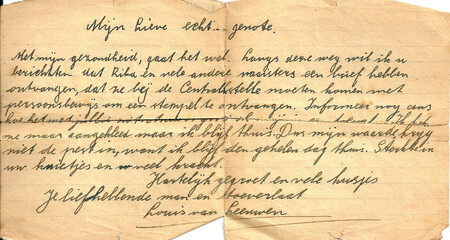 Mijn lieve echt - genote.
Met mijn gezondheid, gaat het wel. Langs deze weg wil ik u
berichten dat Riba en vele andere maaiters een brief hebben
ontvangen, dat ze bij de Centraalstelle moeten komen met
persoonsbewijs om een stempel te ontvangen. Informeer nog eens
hoe het met
me maar aangekleed maar ik blijf thuis. Dus mijn waarde kryg
niet de pest in, want ik blijf den gehelen dag thuis. Sterkte in
uw kuietjes en veel kracht.
Hartelijk gegroet en vele kusjes
Je liefhebbende man en toeverlaat
Louis van Leeuwen